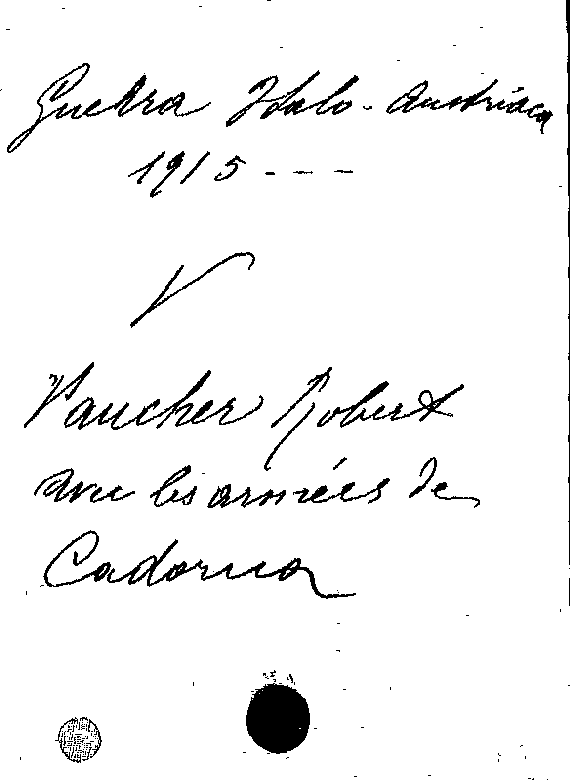 Guerra Italo-Austriaca
1915 - - -
V
Vaucher Robert
avec les armées de
Cadorna